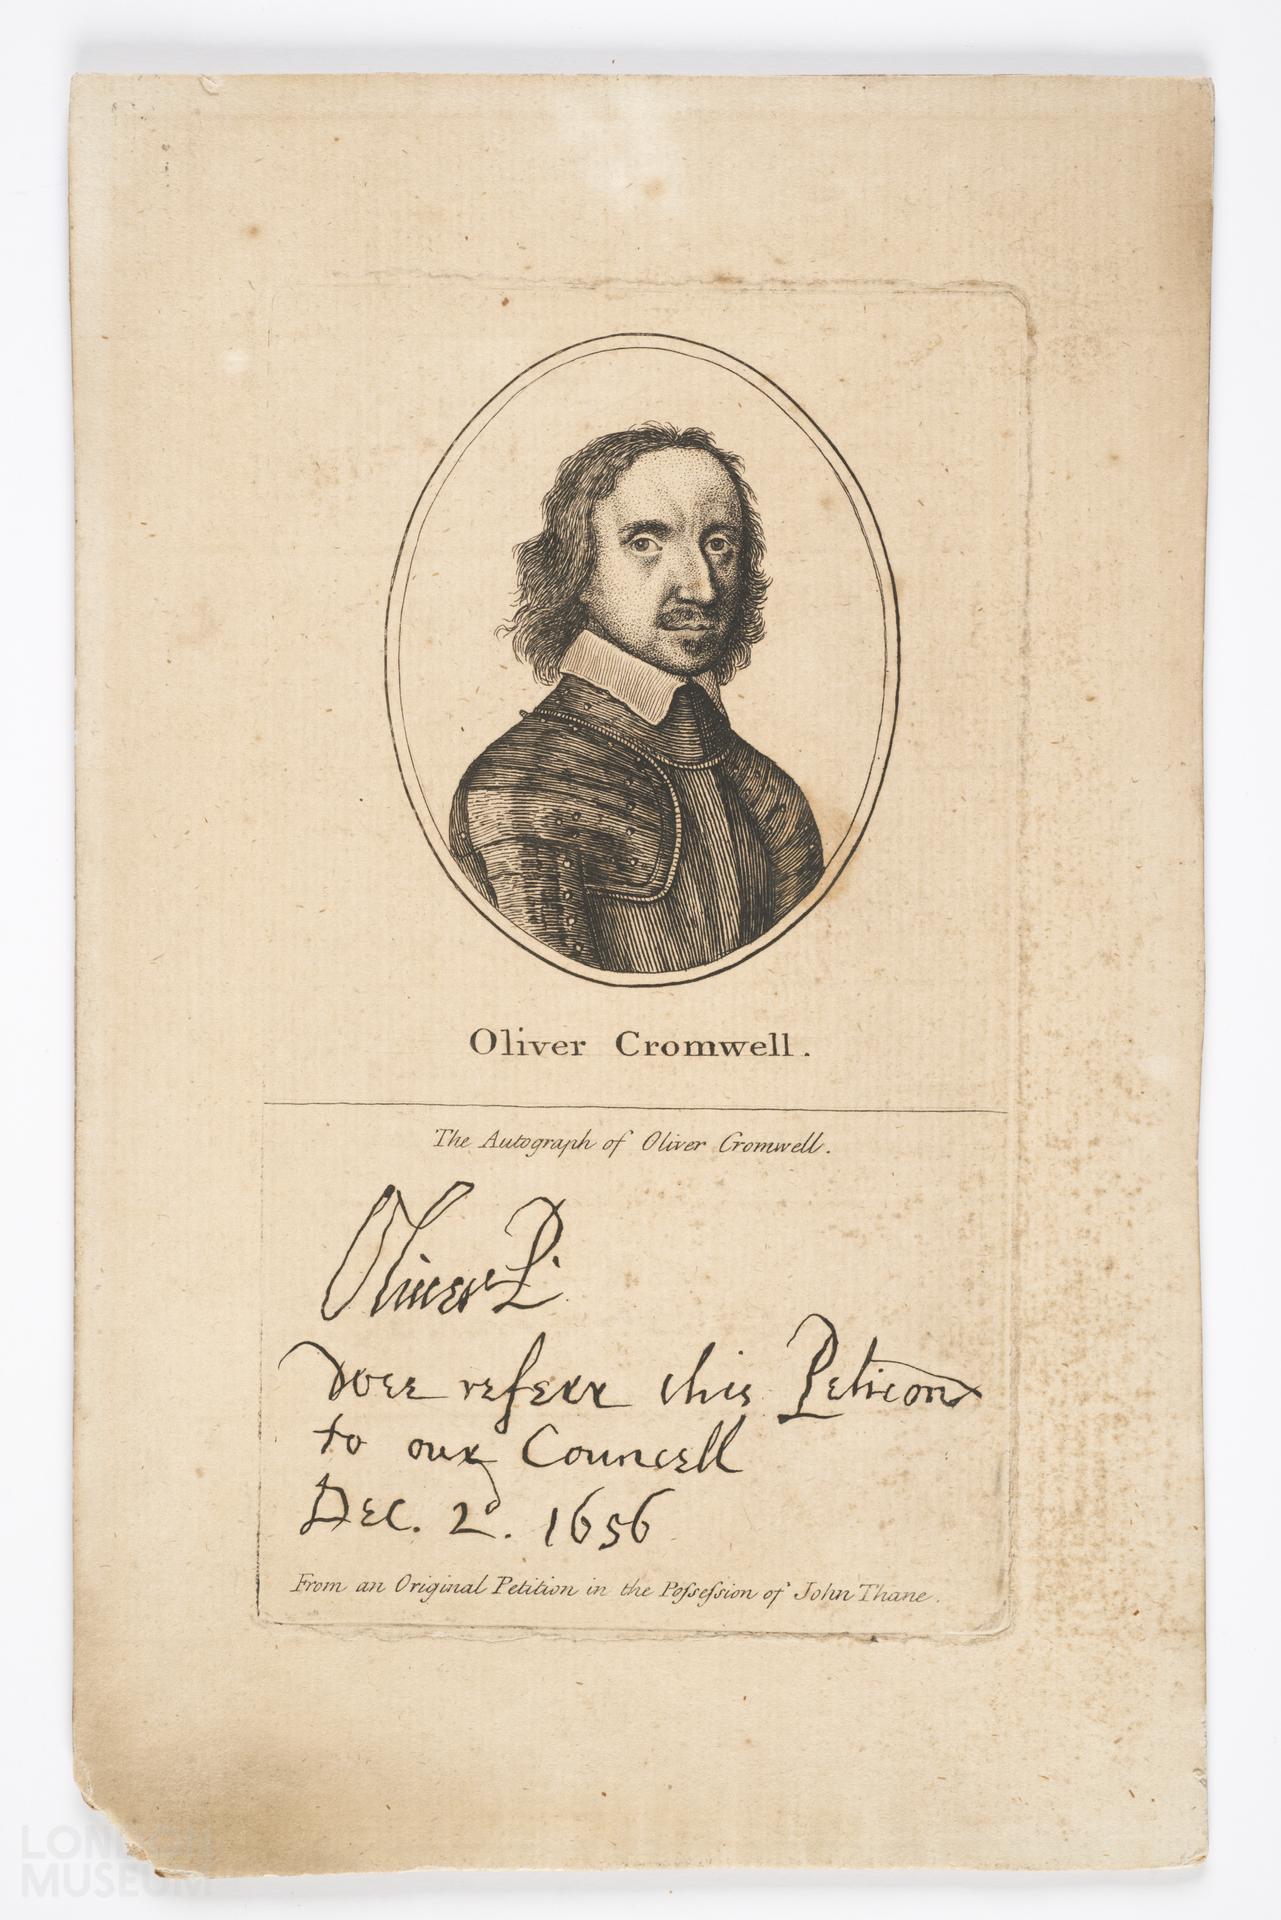 Oliver Cromwell.
The Autograph of Oliver Cromwell.
Oliver P.
Wee referr this Peticon
to our Councell
Dec. 2d. 1656
From an Original Petition in the Poſseſsion of John Thane.
LONDON
MUSEUM